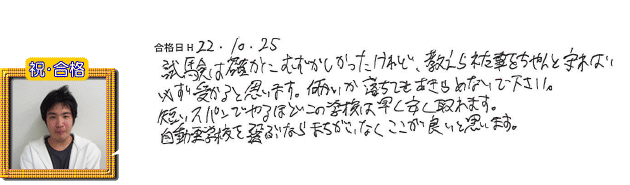 祝・合格
合格日 H 22．10．25
試験は確かにむずかしかったけれど、教えられた事をちゃんと守れば
必ず受かると思います。何回か落ちてもあきらめないで下さい。
短いスパンでやるほどこの学校は早く安く取れます。
自動車学校を選ぶならまちがいなくここが良いと思います。